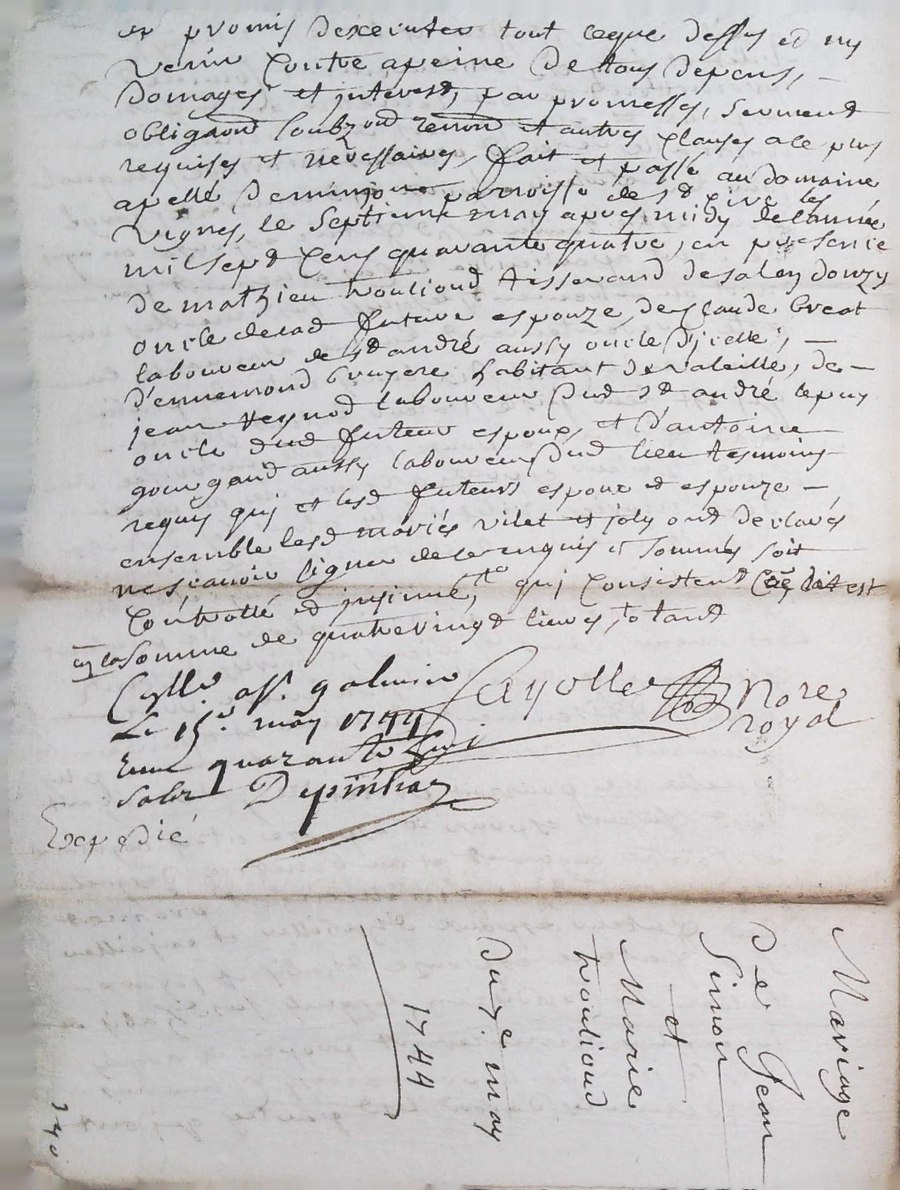 et promis dexecuter tout ceque dessus et ny
venir Contre apeine De tous Depens,
Domages et interest, par promesses, serment
obligaon renon et autres Clauses ale plus
requises et nécessaires, fait et passé au Domaine
apellé parroisse de st les
vignes, le Septieme may apres midy de lannée
mil sept Cens quarante quatre, en presence
de mathieu troulioud tisserand de saley donzy
oncle delad future espouze, de Claude breat
laboureur de st andré aussy oncle Dicelle,
D'ennemond bruyere habitant de valeille, de
jean Reynod laboureur Dud st andré le puy
oncle dud futeur espoux, et D'antoine
gourgaud aussy laboureur Dud lieu tesmoins
requis qui et lesd futeurs espoux et espouze
ensemble lesd mariés vilet et joly ont declarés
ne sçavoir signer de ce enquis et sommés soit
Controllé et insinué, qui Consistent
en la Somme de quatrevingt livres, totant
Cyllé aff. galmier
Le 15e. may 1744
Reçu quarante huit
Sols Depinhac
Fayolle Nore
royal
Expedié
Mariage
De Jean
Simon
et
Marie
troulioud
Du 7e may
1744